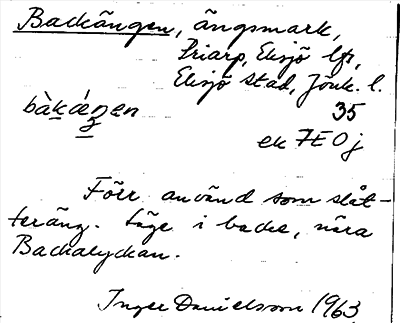 Backängen, ängsmark,
Priarp, Eksjö lfs,
Eksjö stad, Jönk. l.
bàkǽŋen 35
ek 7E0j
Förr använd som slåt-
teräng. Läge i backe, nära
Backalyckan.
Inger Danielsson 1963